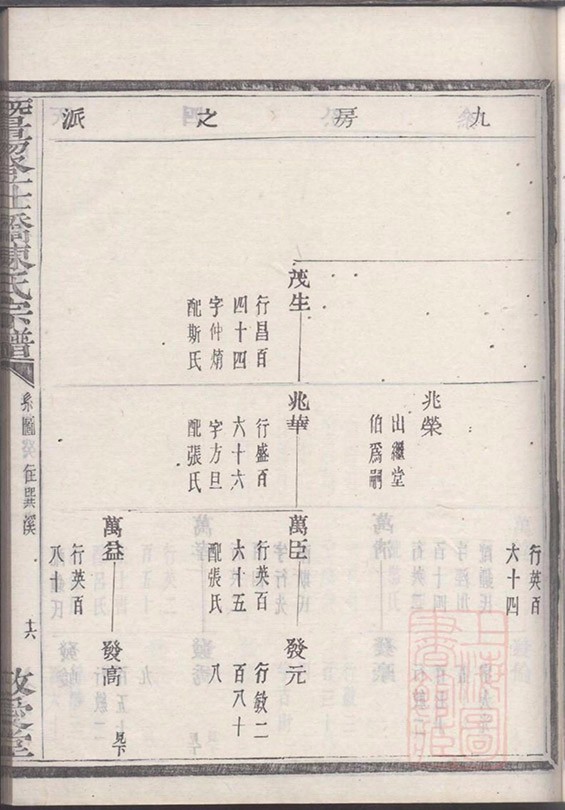 九房之派
行英百
六十四
兆榮
出繼堂
伯爲嗣
茂生
行昌百
四十四
字仲炳
配斯氏
兆華
行盛百
六十六
字方旦
配張氏
萬臣
行英百
六十五
配張氏
發元
行敏二
百八十
八
萬益
行英百
八十
發高
見下
暨陽
橋陳氏宗譜
系圖
十六